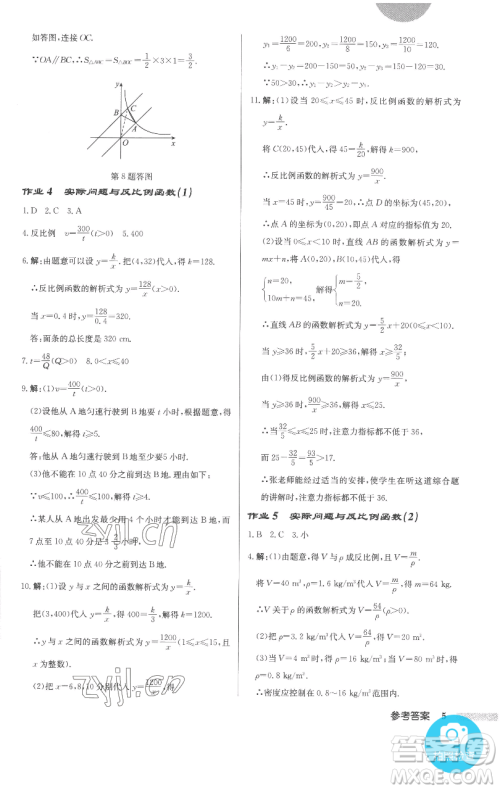 如答图,连接 OC.
∵OA∥BC,∴S△ABC=S△BOC=1/2×3×1=3/2.
y
B
C
A
O
x
第 8 题答图
作业 4 实际问题与反比例函数(1)
1.D 2.C 3.A
4.反比例 v=300/t(t>0) 5.400
6.解:由题意可以设 y=k/x.把(4,32)代入,得 k=128.
∴反比例函数的解析式为 y=128/x(x>0).
当 x=0.4 时,y=128/0.4=320.
答:面条的总长度是 320 cm.
7.t=48/Q(Q>0) 8.0<x≤40
9.解:(1)v=400/t(t>0).
(2)设他从 A 地匀速行驶到 B 地要 t 小时,根据题意,得
400/t≤80,解得 t≥5.
答:他从 A 地匀速行驶到 B 地至少要 5 小时.
(3)他不能在 10 点 40 分之前到达 B 地.理由如下:
∵v≤100,∴400/t≤100,解得 t≥4.
∴某人从 A 地匀速行驶到 B 地至少要 4 小时,而
7 点至 10 点 40 分共 3 2/3 小时,
∴他不能在 10 点 40 分之前到达 B 地.
10.解:(1)设 y 与 x 之间的函数解析式为 y=k/x,
把(3,400)代入 y=k/x,得 400=k/3.
∴y 与 x 之间的函数解析式为 y=1200/x(x>0,且
x 为整数).
(2)把 x=6,8,10 分别代入 y=1200/x,得
y₁=1200/6=200,y₂=1200/8=150,y₃=1200/10=120.
∴y₁-y₂=200-150=50,y₂-y₃=150-120=30.
∵50>30,∴y₁-y₂>y₂-y₃.
11.解:(1)设当 20≤x≤45 时,反比例函数的解析式为
y=k/x,将 C(20,45)代入,得 45=k/20,解得 k=900.
∴反比例函数的解析式为 y=900/x.
当 x=45 时,y=900/45=20.∴点 D 的坐标为(45,20).
∴点 A 的坐标为(0,20).
(2)当 0≤x<10 时,设直线 AB 的函数解析式为 y=
mx+n,将 A(0,20),B(10,45)代入,得
{n=20, 10m+n=45, 解得{m=5/2, n=20.
∴直线 AB 的函数解析式为 y=5/2x+20.
当 y≥36 时,5/2x+20≥36,解得 x≥32/5;
当 y≥36 时,900/x≥36,解得 x≤25.
∴当 32/5≤x≤25 时,注意力指标都不低于 36.
而 25-32/5=93/5>17,
∴张老师能经过适当的安排,使学生在听这道综合题
的讲解时,注意力指标都不低于 36.
作业 5 实际问题与反比例函数(2)
1.B 2.C 3.小
4.解:(1)由题意,得 V 与 ρ 成反比例,设 V=m/ρ,
将(4,16)代入 V=m/ρ,得 m=64.
∴V 关于 ρ 的函数解析式为 V=64/ρ(ρ>0).
(2)当 V=40 m³ 时,ρ=1.6 kg/m³;
当 V=80 m³ 时,ρ=0.8 kg/m³.
∴密度应控制在 0.8~16 kg/m³ 范围内.
zyjl.cn
zyjl.cn
参考答案 5